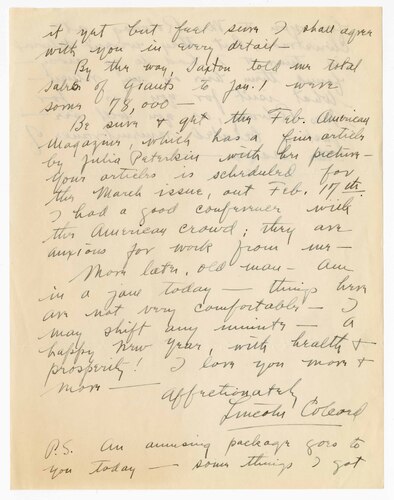 it yet but feel sure I shall agree
with you in every detail—
By the way, Saxton told me total
sales of Giants to Jan. 1 were
some 78,000—
Be sure & get the Feb. American
Magazine, which has a fine article
by Julia Peterkin with her picture—
Your articles is scheduled for
the March issue, out Feb. 1st.
I had a good conference with
the American crowd; they are
anxious for work from me—
More later, old man— Am
in a jam today— things here
are not very comfortable— I
may shift any minute— A
happy New Year, with health &
prosperity! I love you more &
more—
Affectionately
Lincoln Colcord
P.S. An amusing package goes to
you today— some things I got